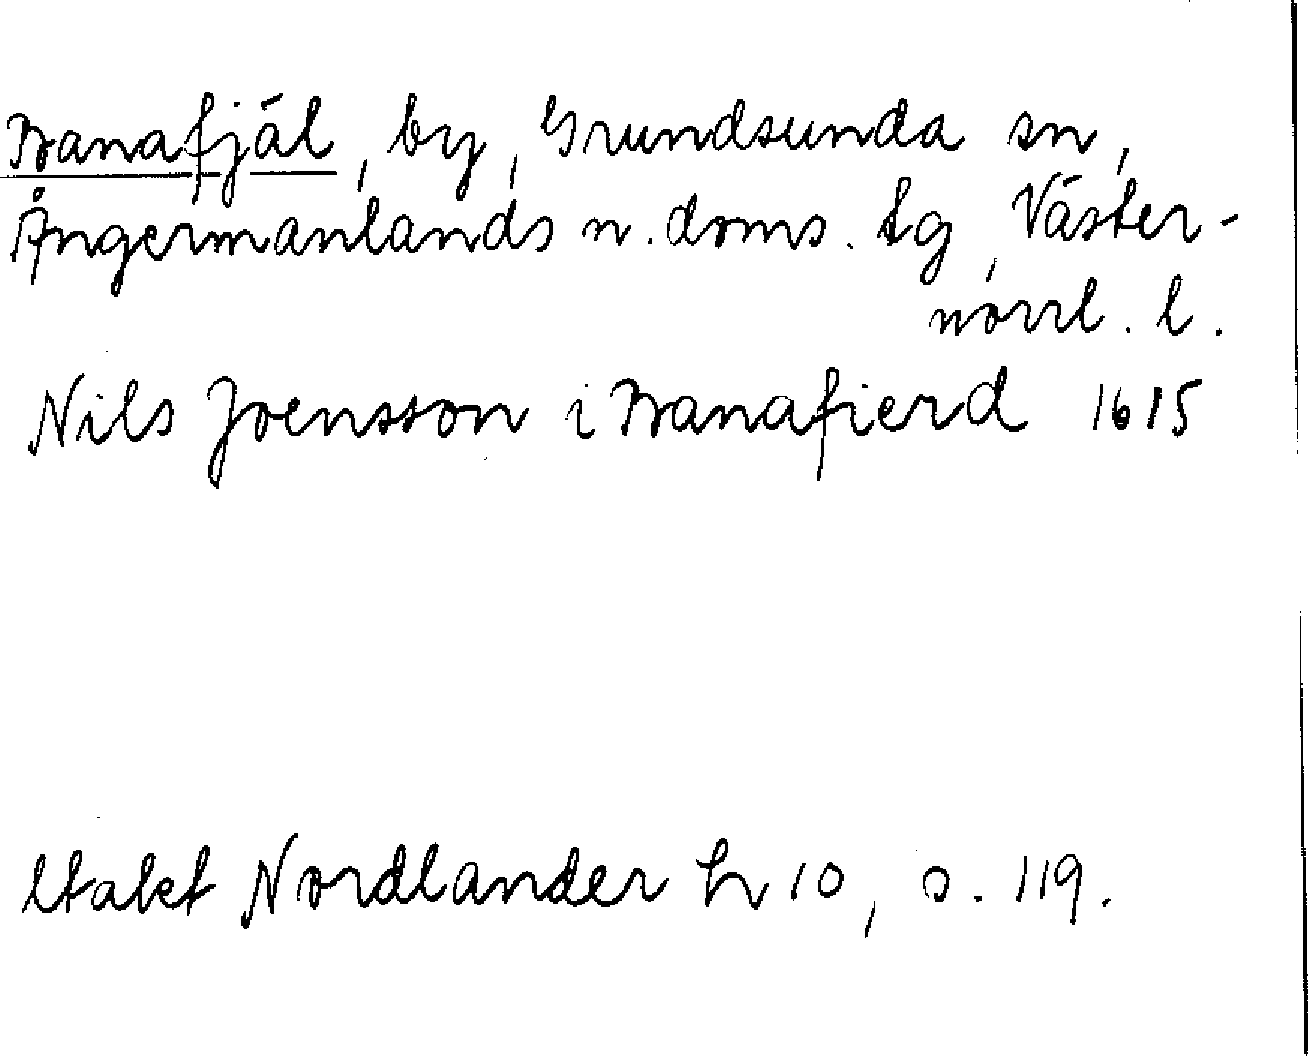 Banafjäl, by, Grundsunda sn,
Ångermanlands n. doms. tg, Väster-
norrl. l.
Nils Joensson i Banafierd 1615
Utalet Nordlander h 10, s. 119.